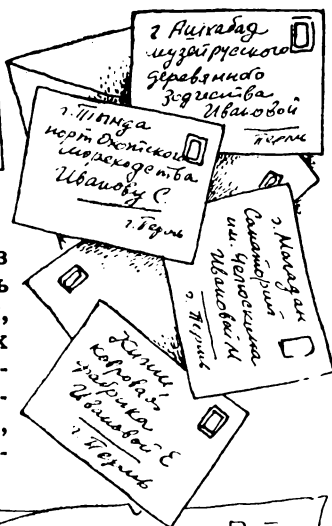 г. Ашхабад
музей русского
деревянного
зодчества
Ивановой
Пермь
г. Тында
порт Охотского
мореходства
Иванову С.
г. Пермь
г. Магадан
Санаторий
им. Челюскина
Ивановой М
г. Пермь
Кижи
ковровая
фабрика
Ивановой Е
г. Пермь